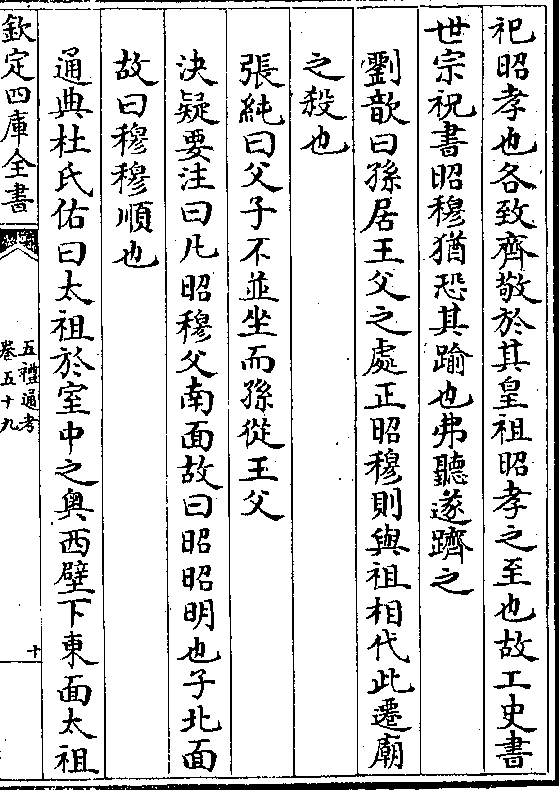 祀昭孝也各致齊敬於其皇祖昭孝之至也故工史書
世宗祝書昭穆猶恐其踰也弗聽遂躋之
劉歆曰孫居王父之處正昭穆則與祖相代此遷廟
之殺也
張純曰父子不並坐而孫從王父
決疑要注曰凡昭穆父南面故曰昭昭明也子北面
故曰穆穆順也
通典杜氏佑曰太祖於室中之奥西壁下東面太祖
欽定四庫全書
五禮通考
卷五十九
十